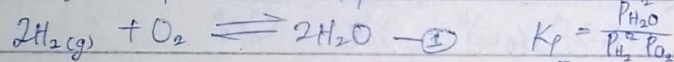 2H₂(g) + O₂ ⇌ 2H₂O —① Kp = P²H₂O / P²H₂ PO₂